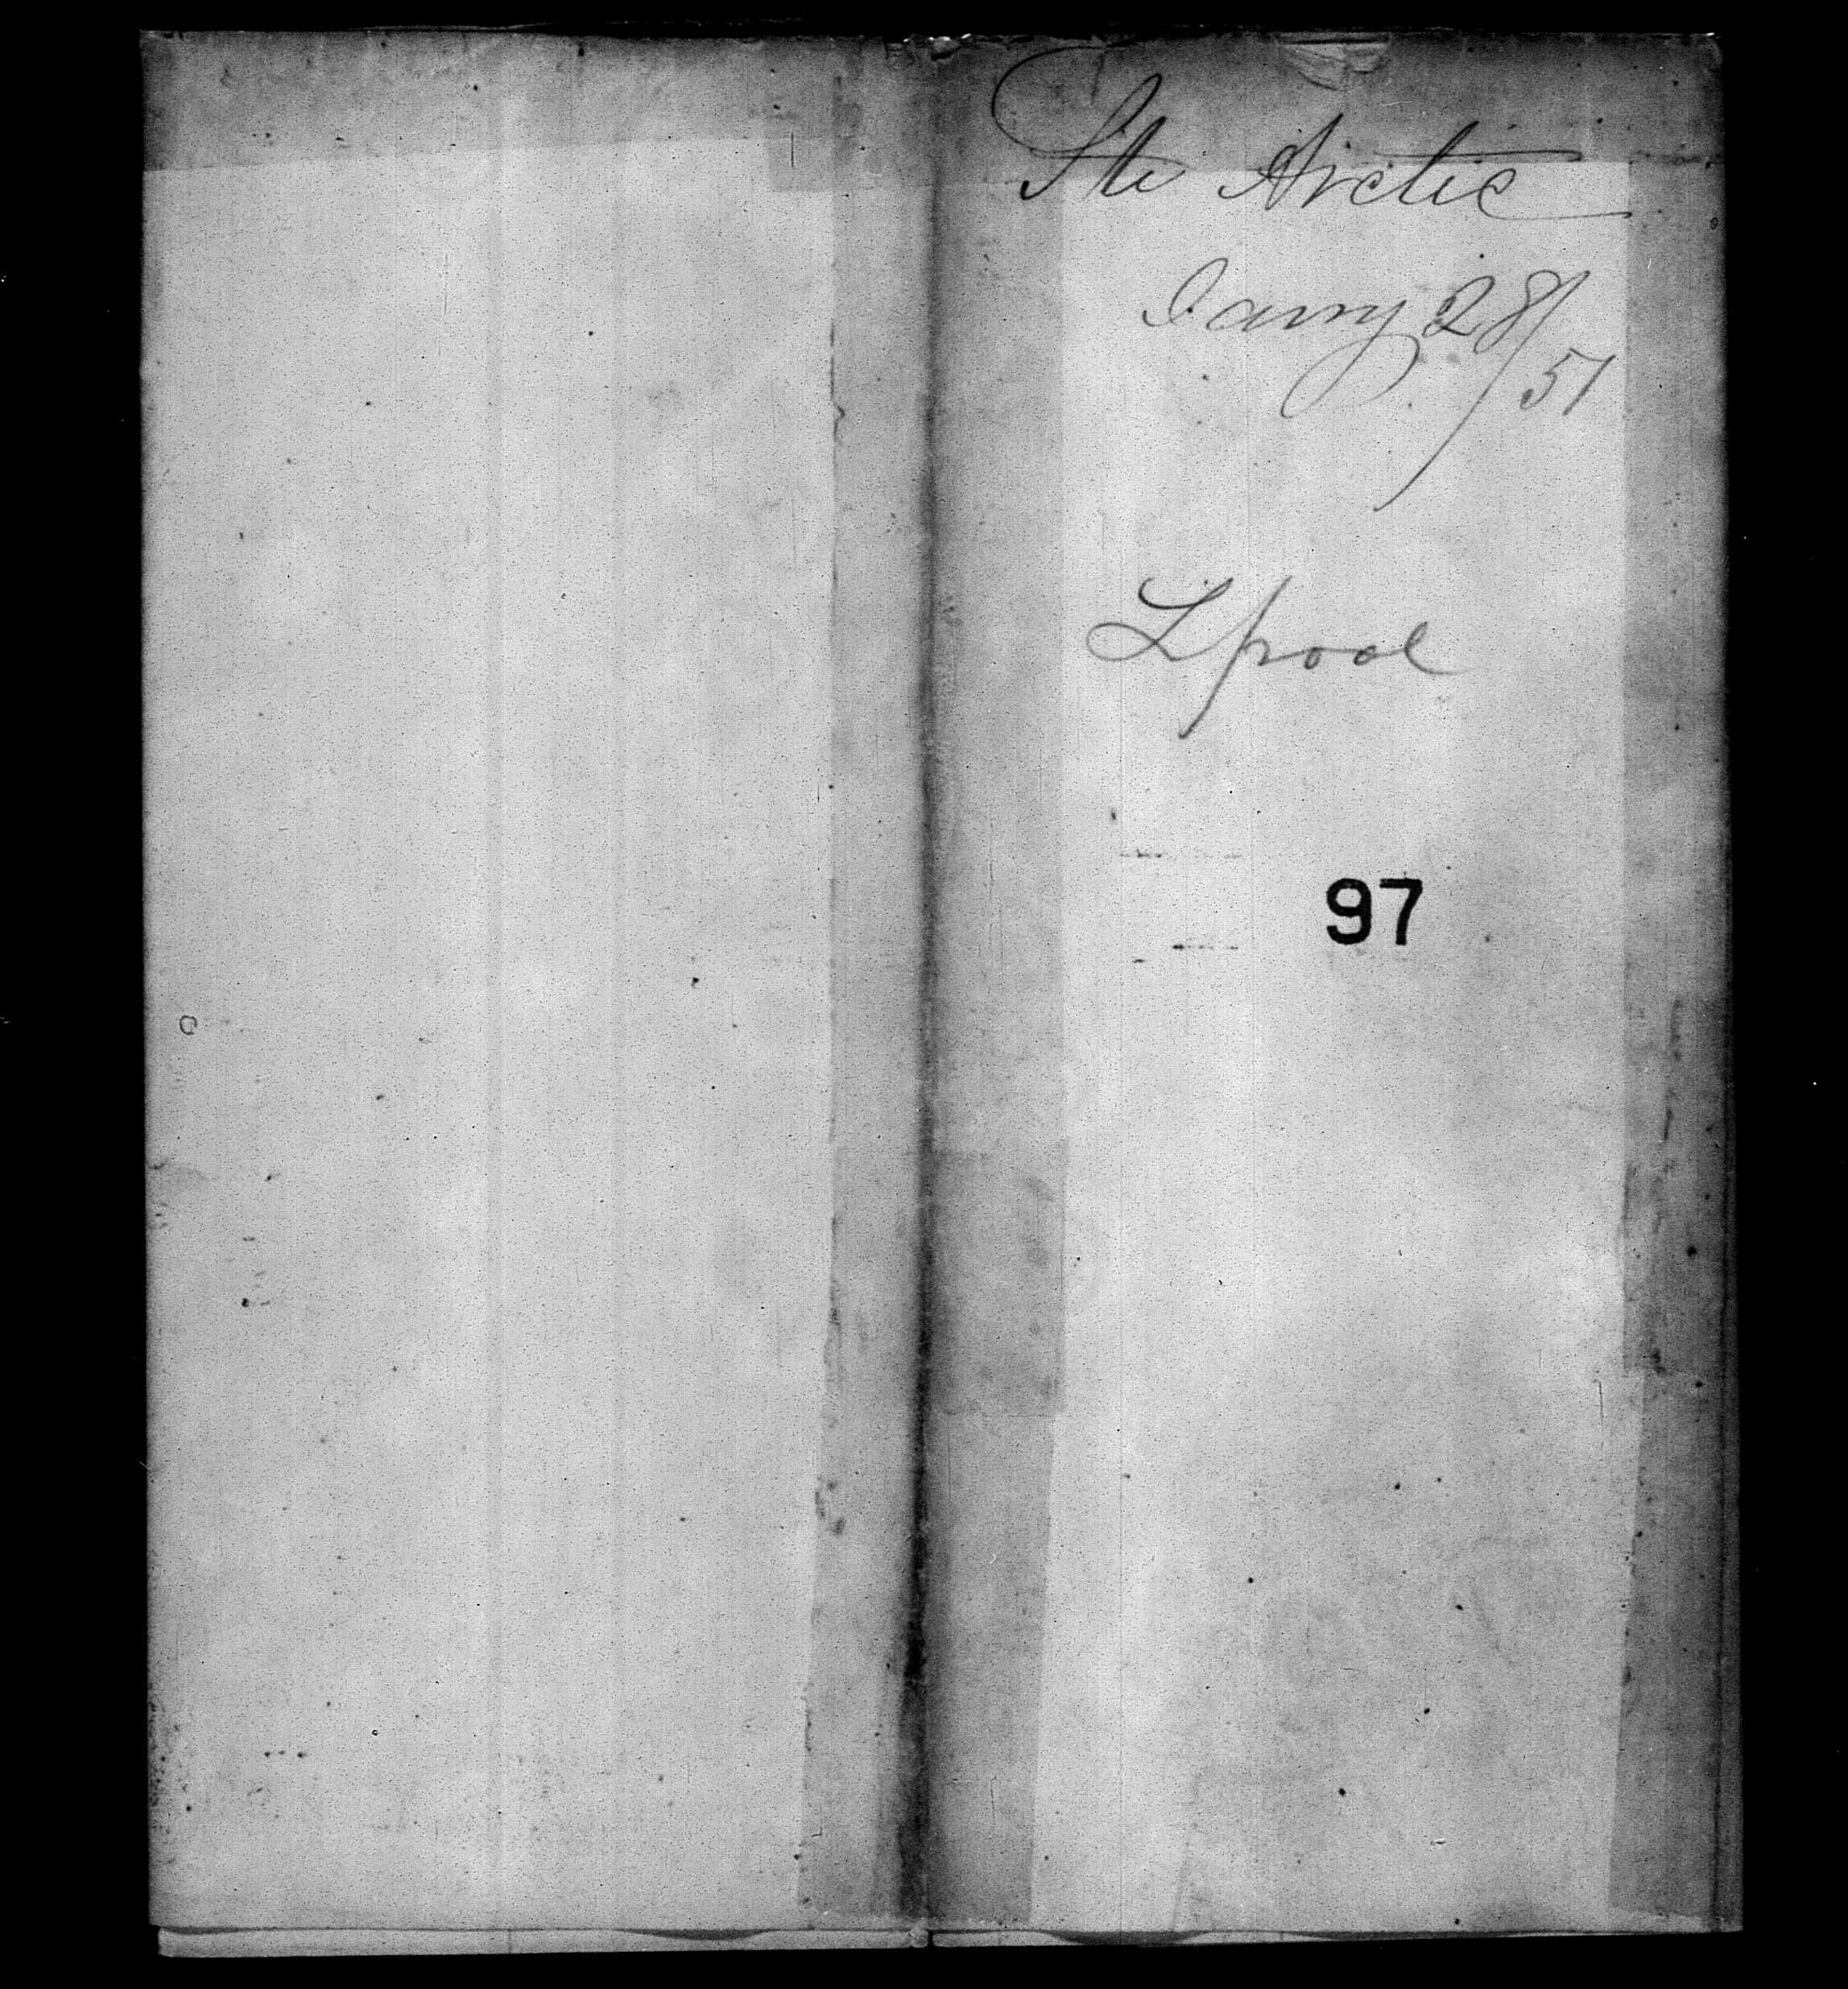 Ste Arctic
Jany 28/
51
Lpool
97